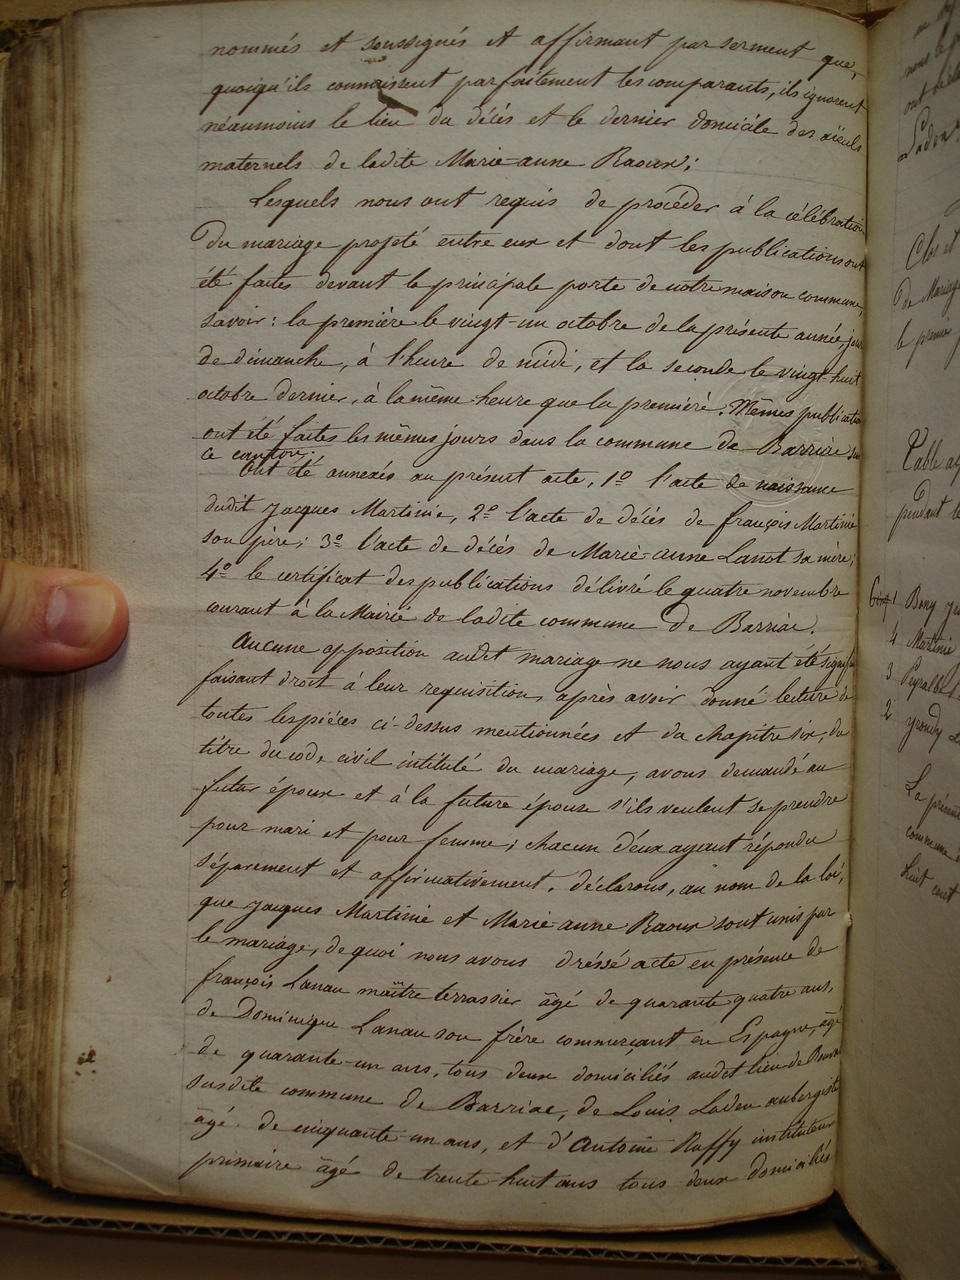 nommés et soussignés et affirmant par serment que,
quoiqu'ils connaissent parfaitement les comparants, ils ignorent
néaumoins le lieu du décès et le dernier domicile des aïeuls
maternels de ladite Marie-anne Raoux;
Lesquels nous ont requis de procéder à la célébration
du mariage projeté entre eux et dont les publications ont
été faites devant la principale porte de notre maison commune,
savoir: la première le vingt-un octobre de la présente année, jour
de dimanche, à l'heure de midi, et la seconde le vingt-huit
octobre dernier, à la même heure que la première. Mêmes publications
ont été faites les mêmes jours dans la commune de Barriac sur
ce canton.
Ont été annexés au présent acte, 1º l'acte de naissance
dudit Jacques Martinie, 2º l'acte de décès de françois Martinie
son père; 3º l'acte de décès de Marie-anne Lanot sa mère;
4º le certificat des publications délivré le quatre novembre
courant à la Mairie de ladite commune de Barriac.
Aucune opposition audit mariage ne nous ayant été
faisant droit à leur requisition, après avoir donné lecture de
toutes les pièces ci-dessus mentionnées et du chapitre six, du
titre du code civil intitulé du mariage, avons demandé au
futur époux et à la future épouse s'ils veulent se prendre
pour mari et pour femme; chacun d'eux ayant répondu
séparement et affirmativement, déclarons, au nom de la loi,
que Jacques Martinie et Marie-anne Raoux sont unis par
le mariage, de quoi nous avons dréssé acte en présence de
françois Lanau maître terrassier âgé de quarante quatre ans,
de Dominique Lanau son frère commerçant en Espagne, âgé
de quarante-un ans, tous deux domiciliés audit lieu de
susdite commune de Barriac, de Louis Ladeu aubergiste
âgé de cinquante-un ans, et d'Antoine Ruffy instituteur
primaire âgé de trente-huit ans tous deux domiciliés
Clos et
de Mariage
le premier
Table
pendant le
1 Bony
4 Martinie
3
2
La présente
commune
huit cent